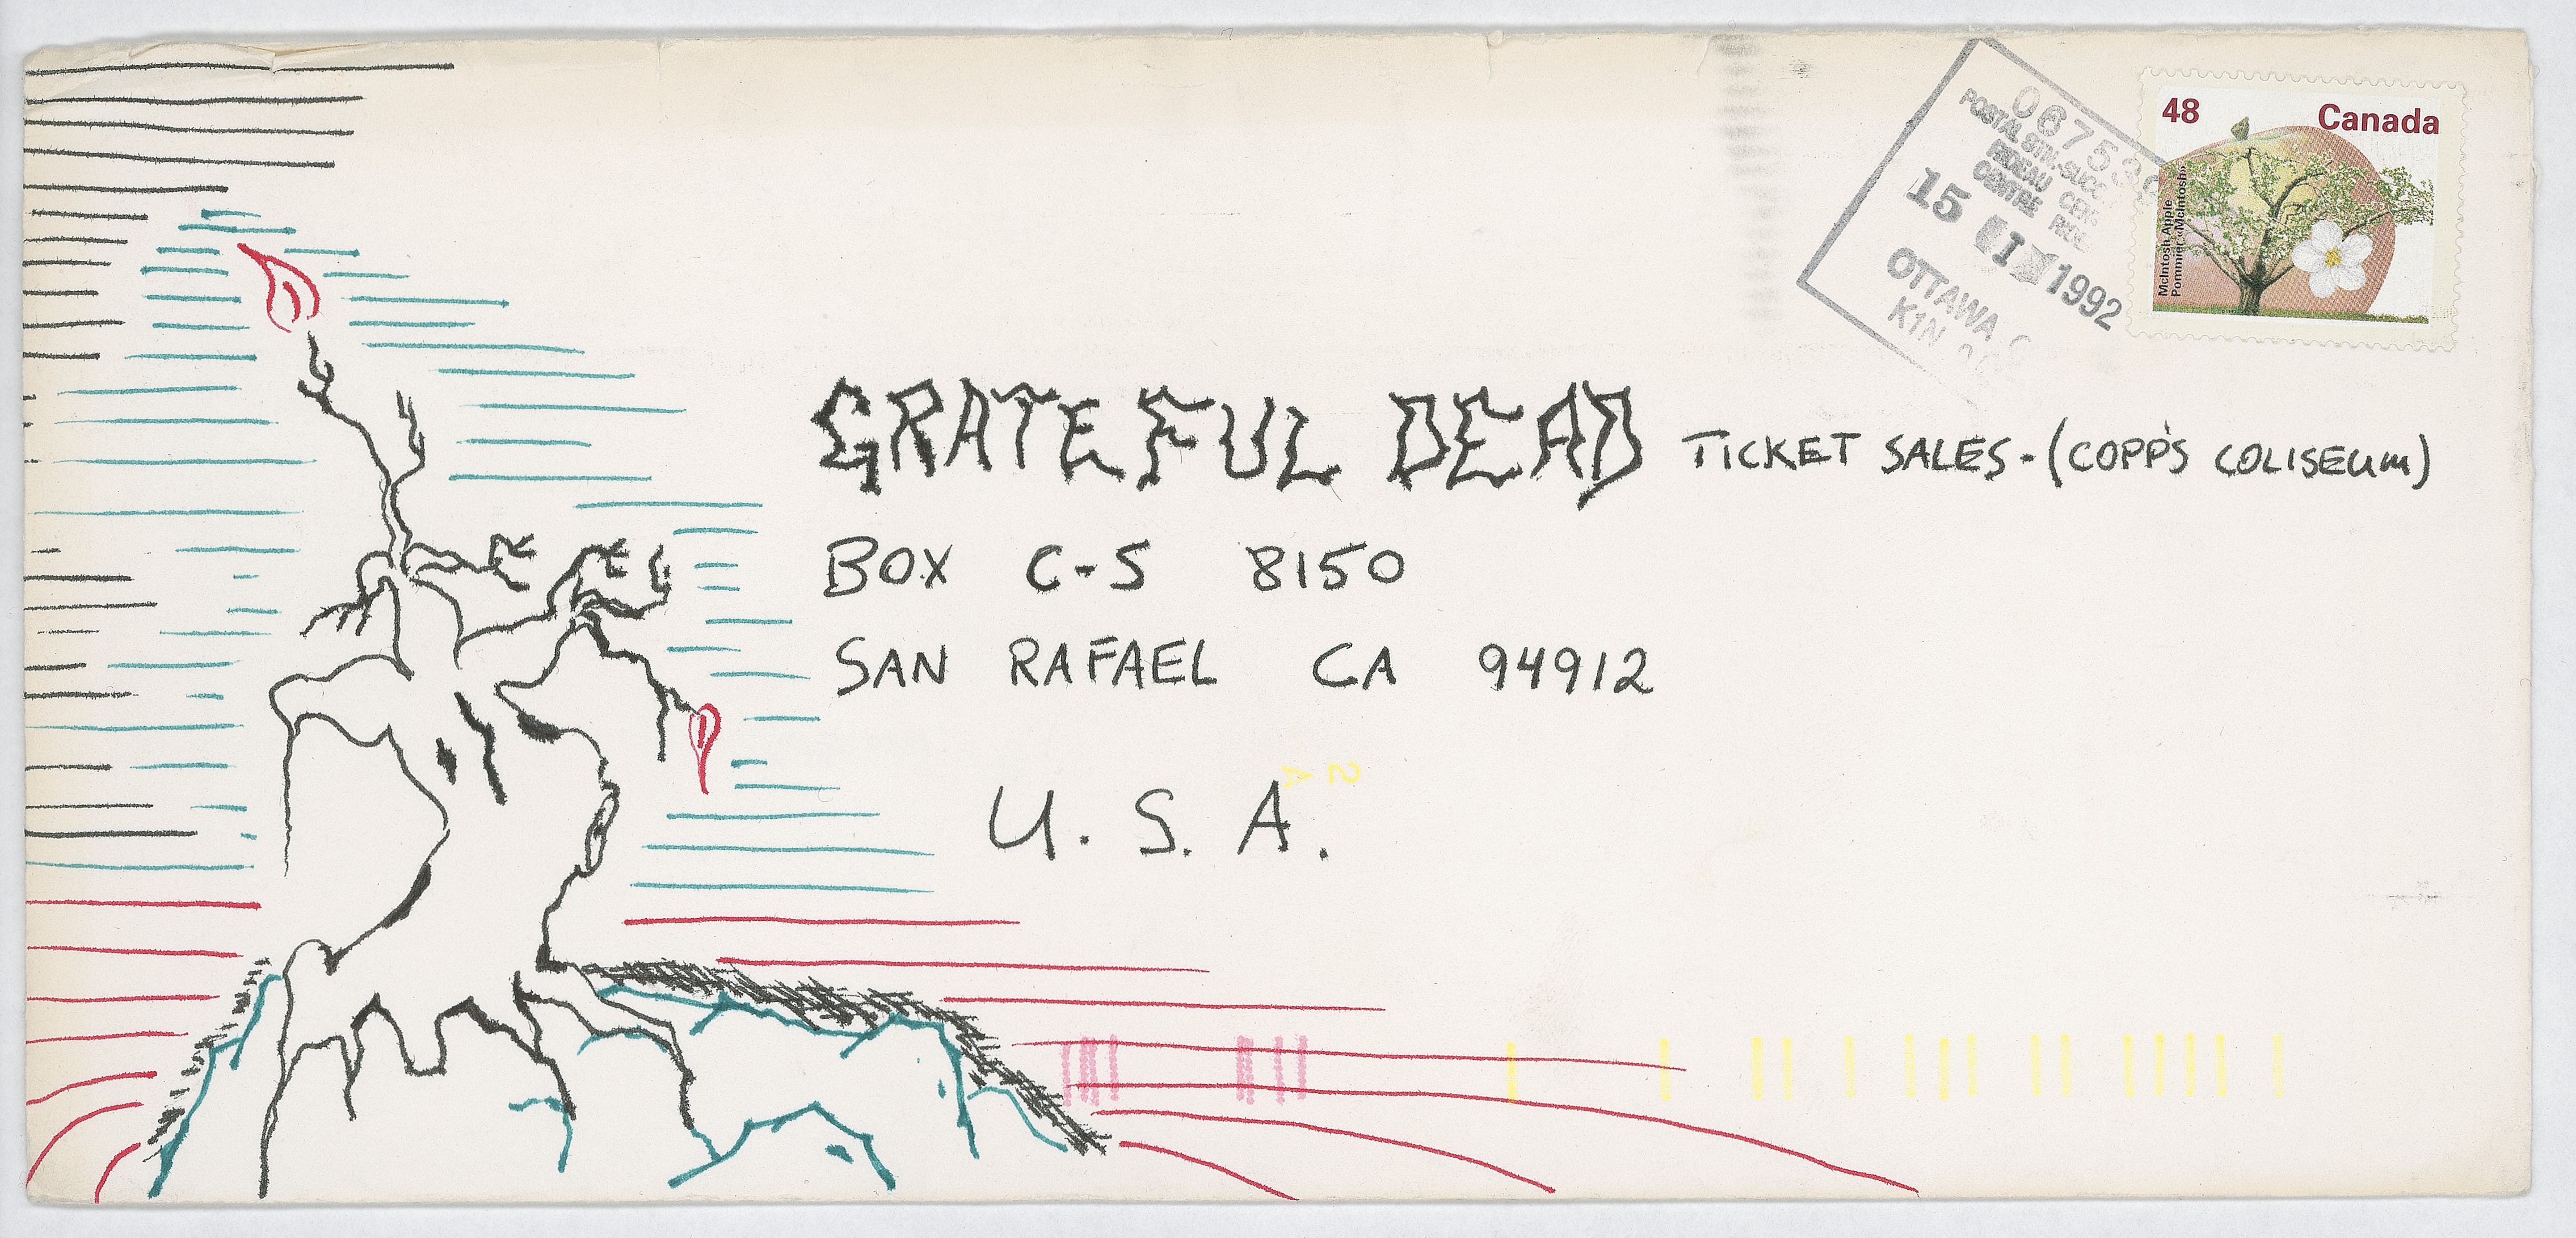 48 Canada
McIntosh Apple
Pommier «McIntosh»
POSTAL STN.-SUCC.
RIDEAU
CENTRE
15 1992
OTTAWA
K1N
GRATEFUL DEAD TICKET SALES-(COPP'S COLISEUM)
BOX C-S 8150
SAN RAFAEL CA 94912
U.S.A.